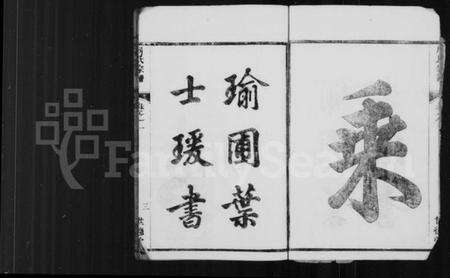 乘
瑜圃葉
士瑗書
FamilySearch